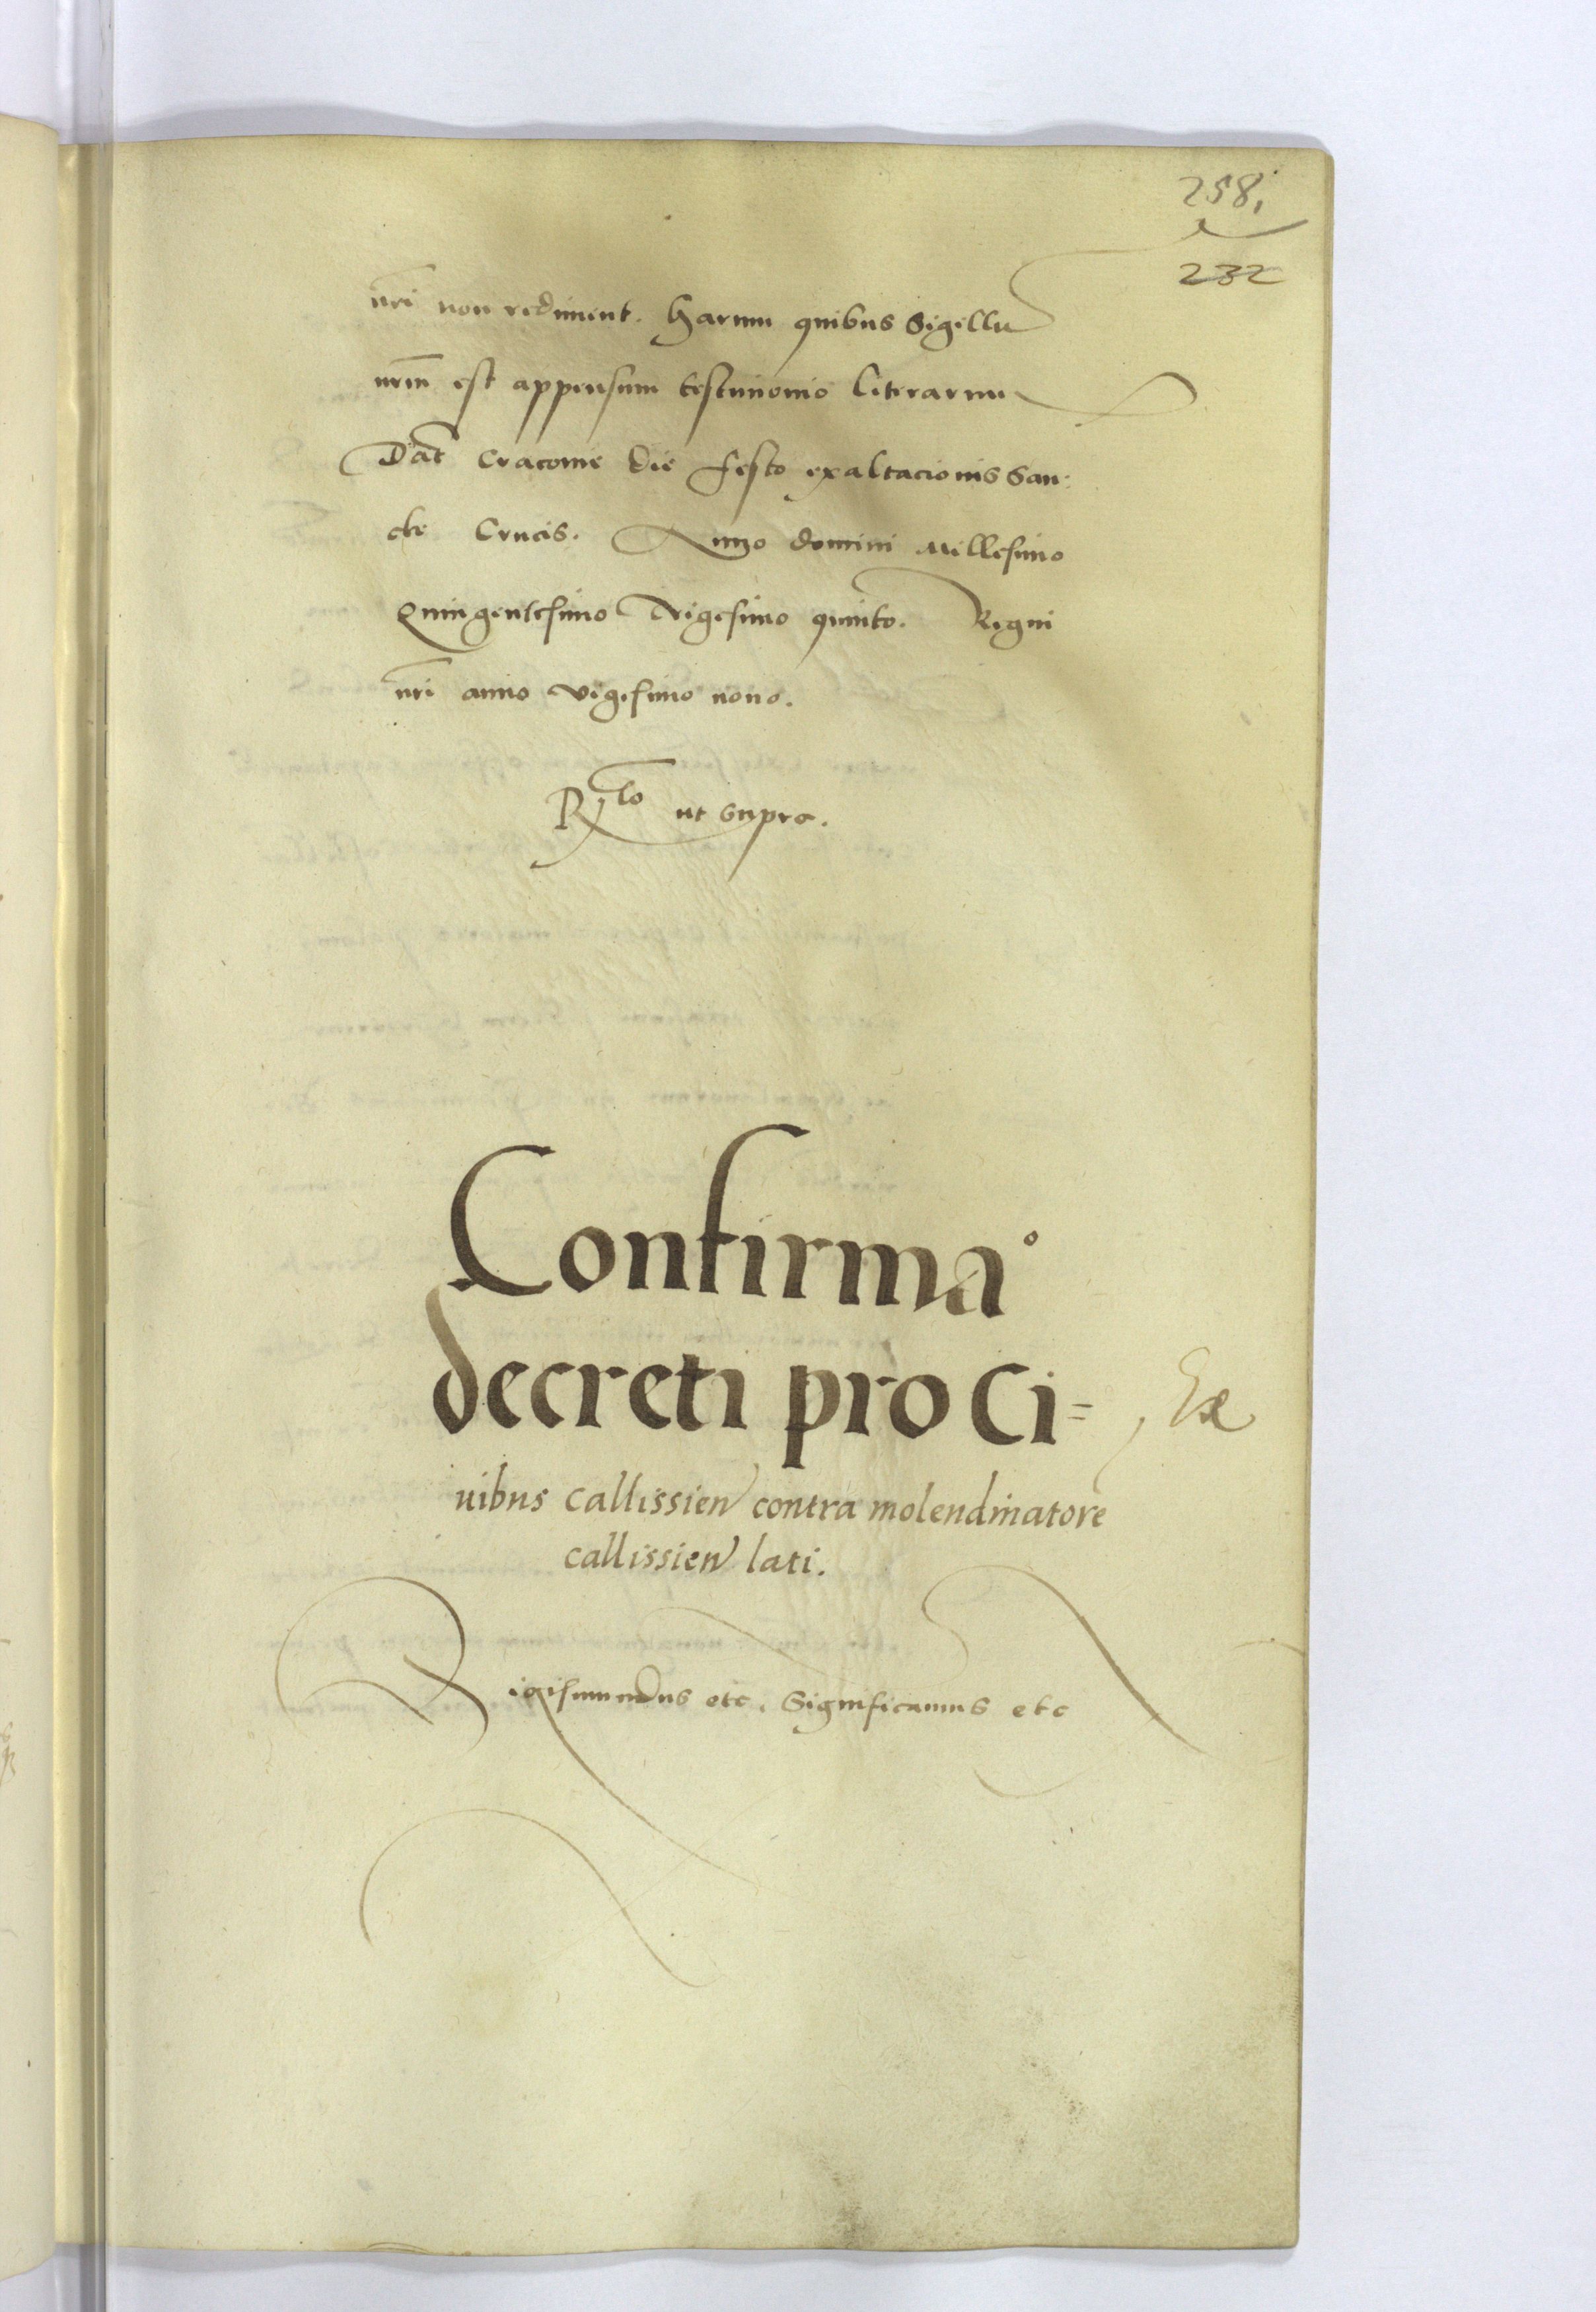 258.
232
nri non rediment. Harum quibus Sigillu
nrm est appensum testimonio literarum
Dat Cracovie die festo exaltacionis San:
cte Crucis. Anno domini Millesimo
Quingentesimo Trigesimo quinto. Regni
nri anno vigesimo nono.
Rlo ut supra.
Confirmao
decreti pro Ci=
uibus callissien contra molendinatore
callissien lati.
Sigismundus etc. Significamus etc